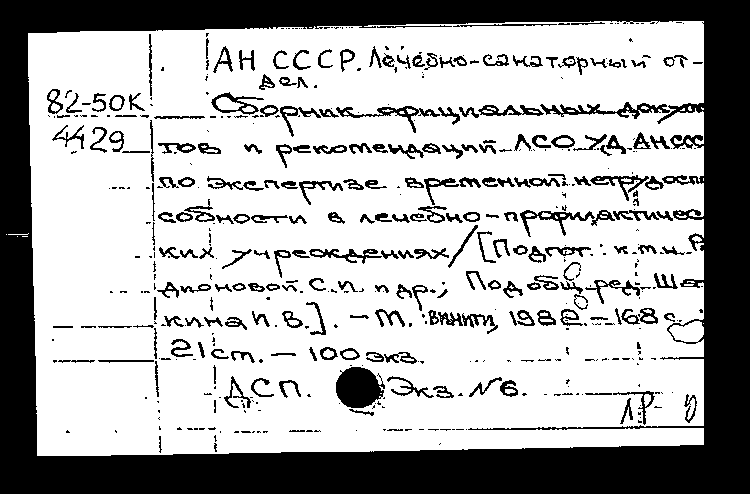 АН СССР. Лечебно-санаторный от-
дел.
82-50К
Сборник официальных докум
4429
тов и рекомендаций ЛСО УД АН ССС
по экспертизе временной нетрудосп
собности в лечебно-профилактичес
ких учреждениях / [Подгот.: к.м.н. Р
дионовой С.П. и др.; Под общ. ред. Ша
кина П.В.]. - М.: ВИНИТИ, 1982. - 168 с.
21 см. - 100 экз.
ДСП. Экз. №6.